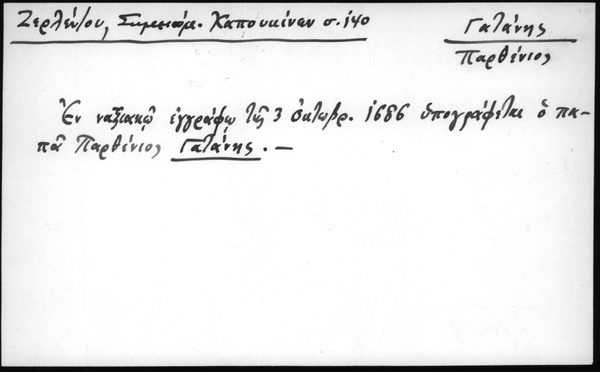 Ζερλέντου, Σημείωμ. Καπουκίνων σ. 140
Γατάνης
Παρθένιος
Ἐν ναξιακῷ ἐγγράφῳ τῆς 3 ὀκτωβρ. 1686 ὑπογράφεται ὁ πα-
πᾶ Παρθένιος Γατάνης. —